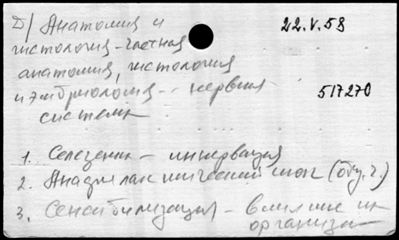 Д/ Анатомия и
гистология - частная
анатомия, гистология
и эмбриология - нервная
система
22.V.58
517270
1. Селезенка - иннервация
2. Анафилактический шок (общ. ч.)
3. Сенсибилизация - влияние на
организм